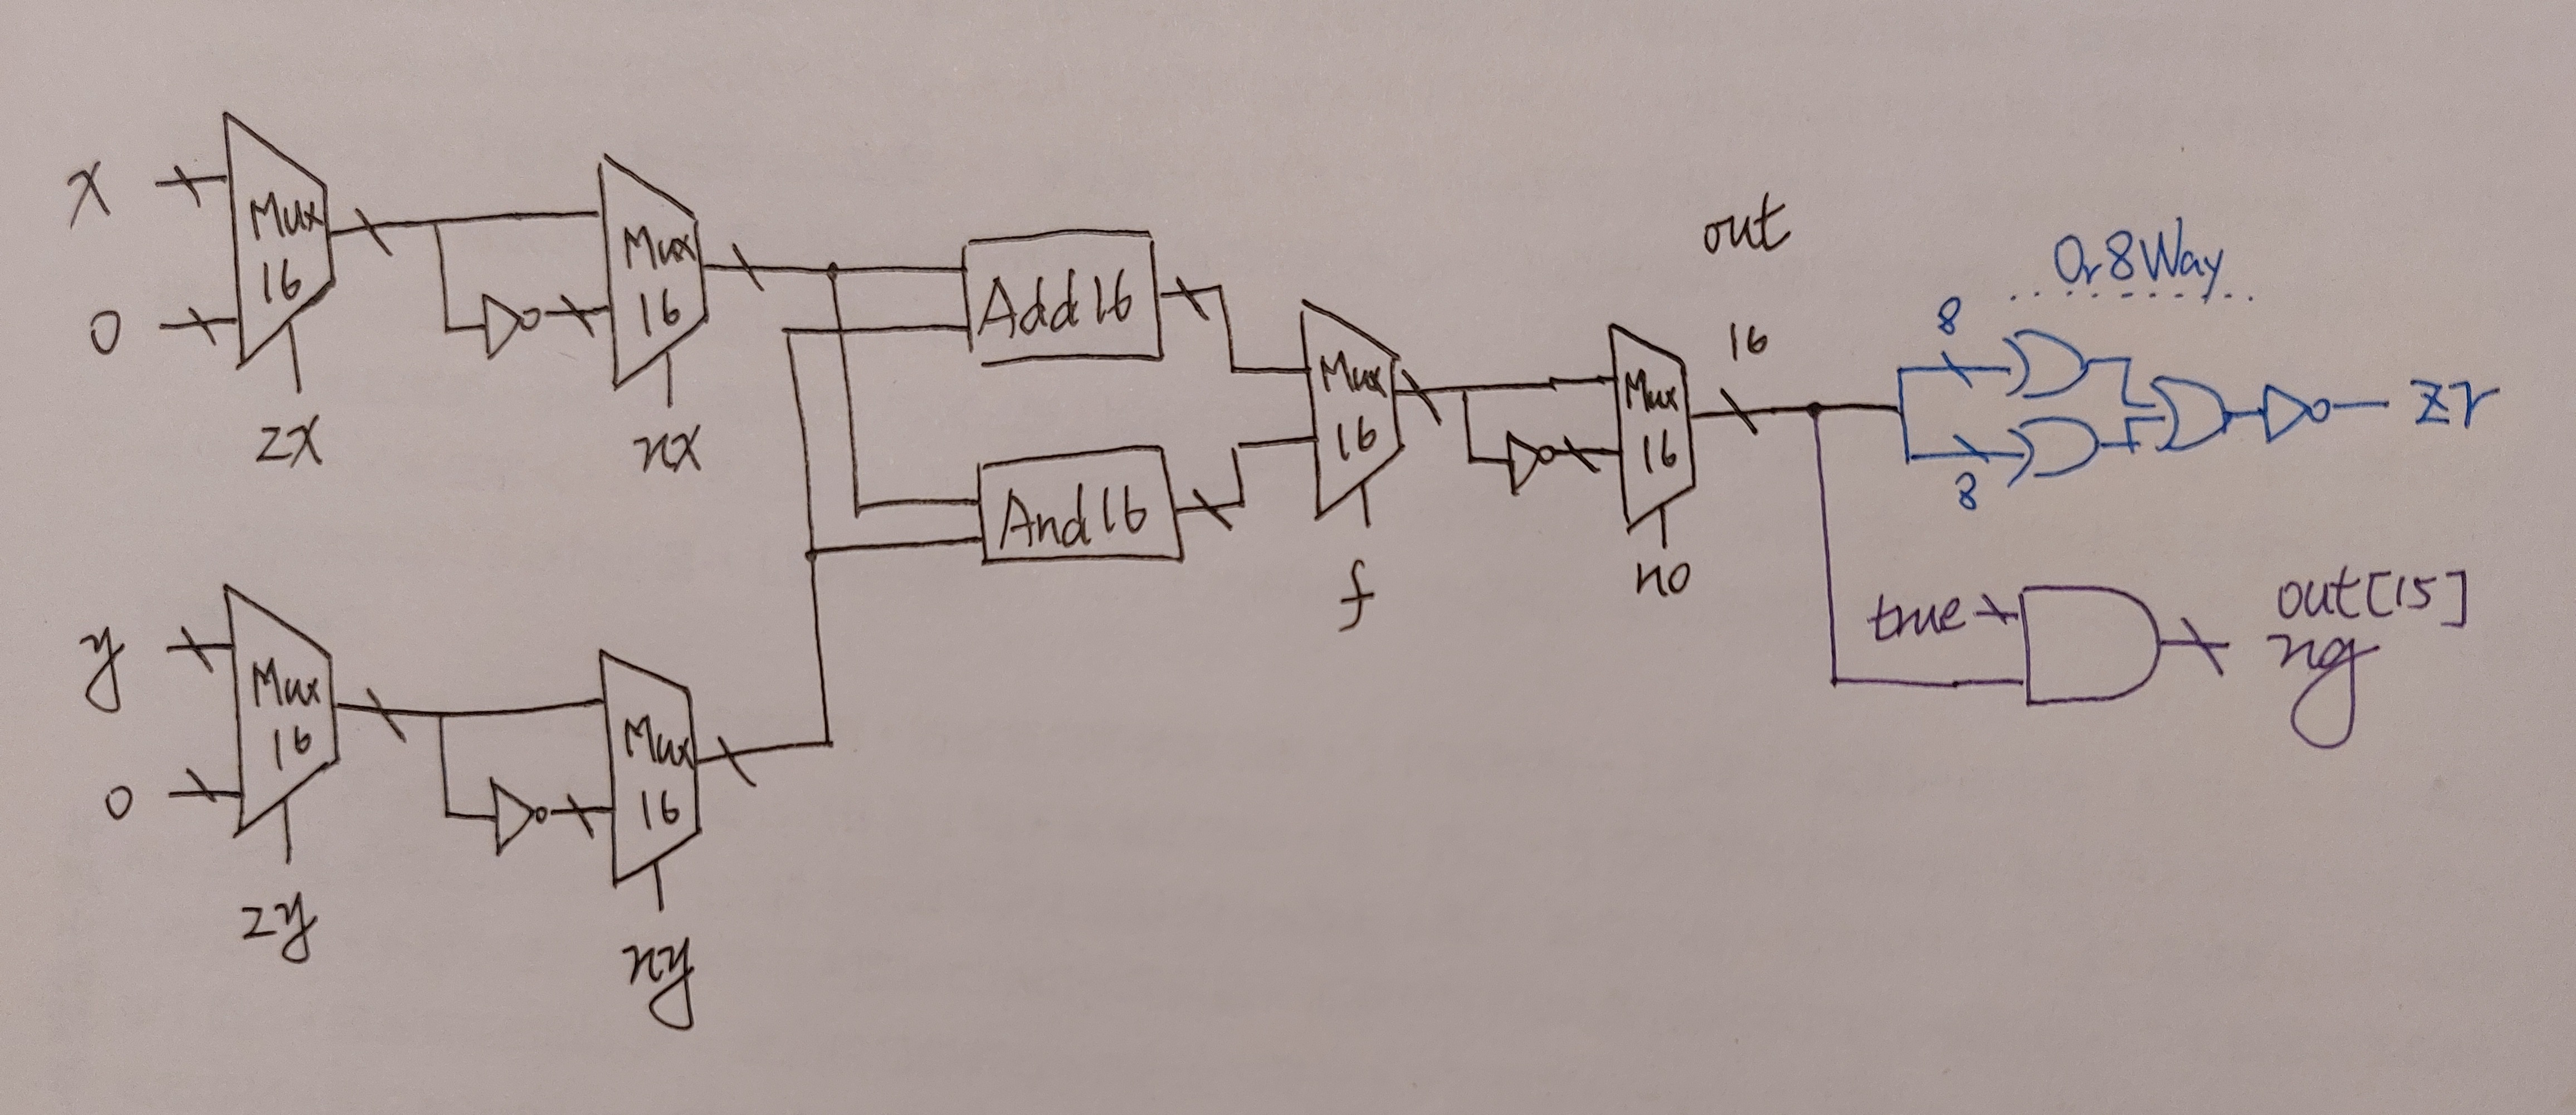 x
0
Mux
16
zx
Mux
16
nx
y
0
Mux
16
zy
Mux
16
ny
Add16
And16
Mux
16
f
Mux
16
no
out
16
Or8Way
8
8
zr
true
out[15]
ng